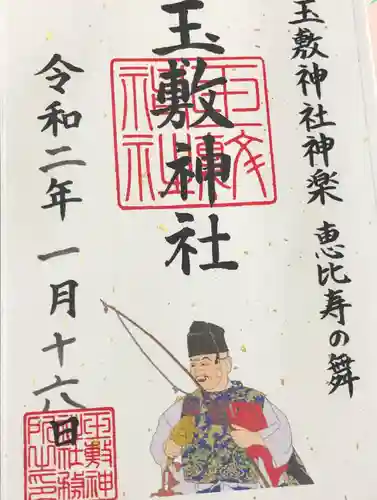 玉敷神社神楽 恵比寿の舞
玉敷神社
令和二年一月十六日
玉敷神社
玉敷神社社務所之印